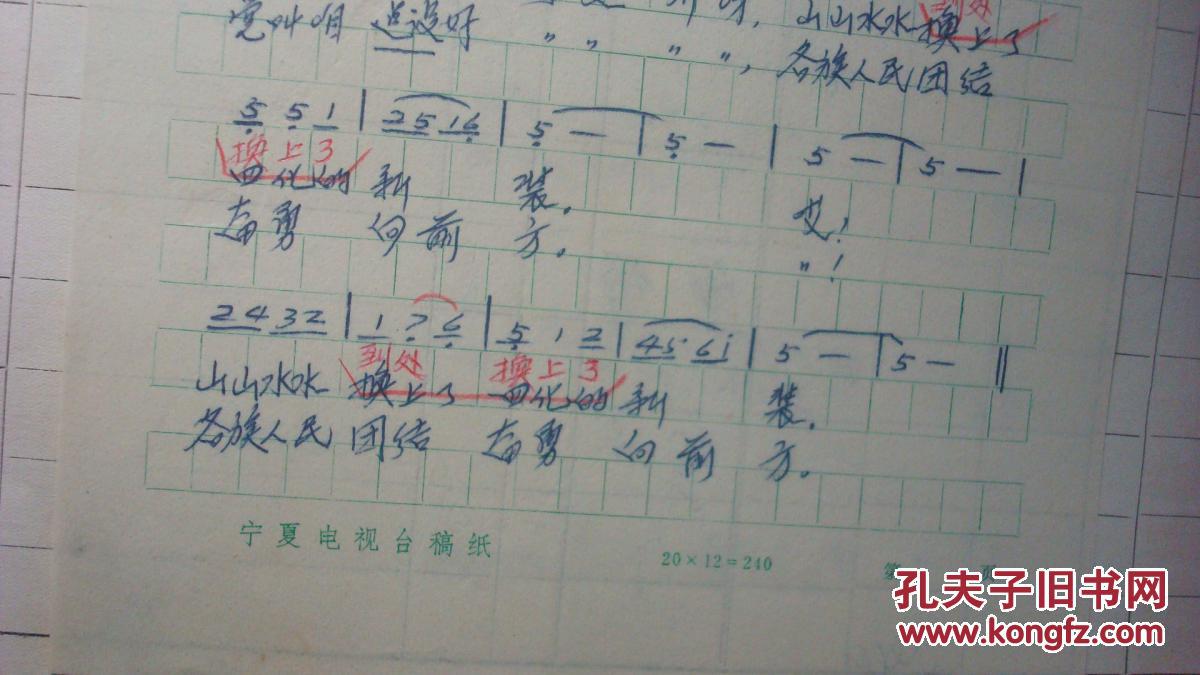 到处
山山水水换上了
党叫咱 建设好 〃 〃 〃 〃, 各族人民团结
5 5 1 | 2 5 1 6 | 5 — | 5 — | 5 — | 5 — |
换上了
四化的 新 装。 艾!
奋勇 向前 方。 〃!
2 4 3 2 | 1 7 6 | 5 1 2 | 4 5 6 i | 5 — | 5 — ‖
到处 换上了
山山水水 换上了 四化的 新 装。
各族人民 团结 奋勇 向前 方。
宁夏电视台稿纸 20×12=240 第 页
孔夫子旧书网
www.kongfz.com